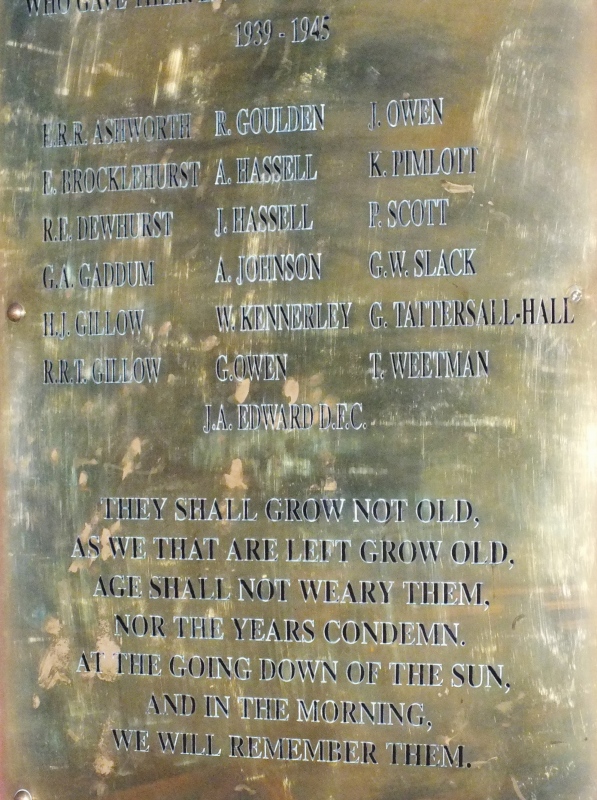 WHO GAVE THEIR
1939 - 1945
E.R.R. ASHWORTH R. GOULDEN J. OWEN
E. BROCKLEHURST A. HASSELL K. PIMLOTT
R.E. DEWHURST J. HASSELL P. SCOTT
G.A. GADDUM A. JOHNSON G.W. SLACK
H.J. GILLOW W. KENNERLEY G. TATTERSALL-HALL
R.R.T. GILLOW G.OWEN T. WEETMAN
J.A. EDWARD D.F.C.
THEY SHALL GROW NOT OLD,
AS WE THAT ARE LEFT GROW OLD,
AGE SHALL NOT WEARY THEM,
NOR THE YEARS CONDEMN.
AT THE GOING DOWN OF THE SUN,
AND IN THE MORNING,
WE WILL REMEMBER THEM.